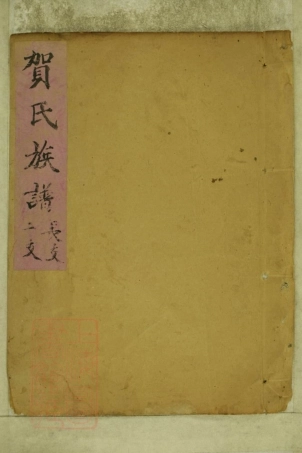 賀氏族譜
長支
二支